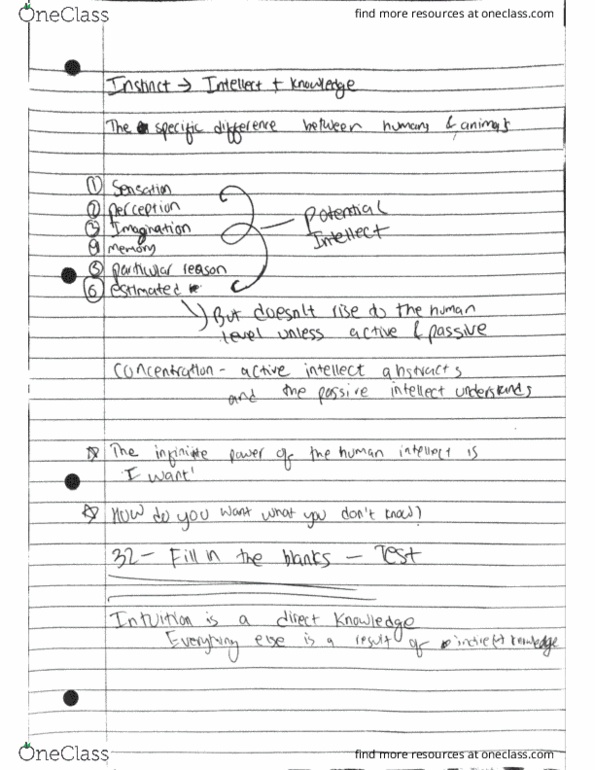 OneClass
find more resources at oneclass.com
Instinct → Intellect + Knowledge
The specific difference between humans & animals
① Sensation
② perception
③ Imagination
④ memory
⑤ particular reason
⑥ estimated
Potential
Intellect
But doesn't rise do the human
level unless active & passive
Concentration - active intellect abstracts
and the passive intellect understands
☆ The infinite power of the human intellect is
'I want'
☆ How do you want what you don't know?
32 - Fill in the blanks - Test
Intuition is a direct knowledge
Everything else is a result of indirect knowledge
OneClass
find more resources at oneclass.com